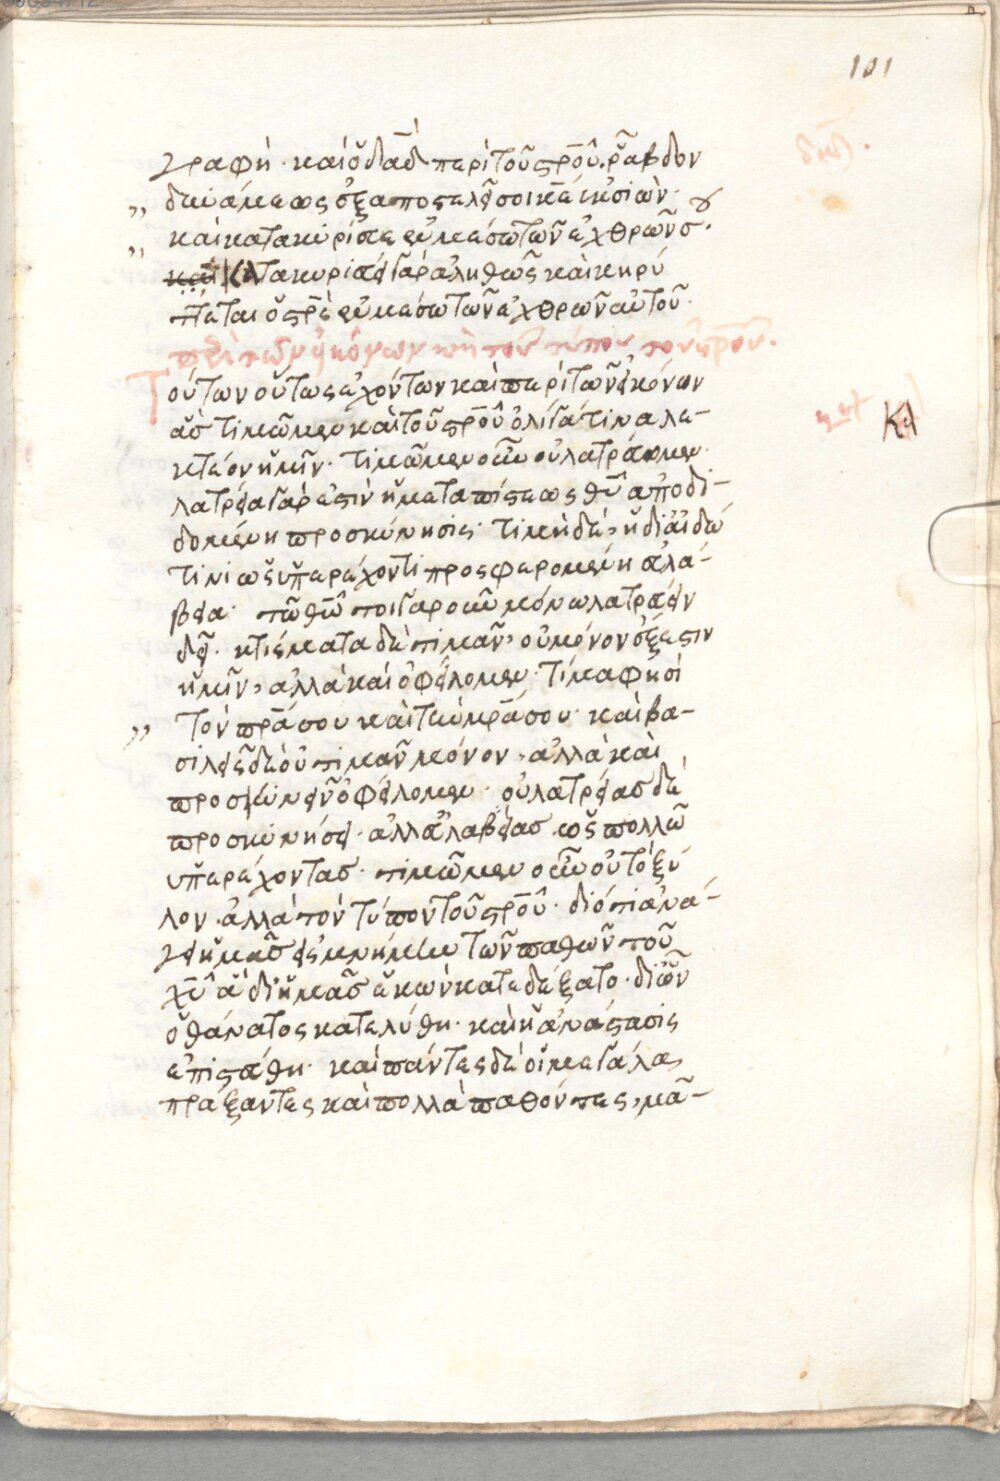 101
γραφή· καὶ ὁ δᾱδ περὶ τοῦ σρ̄οῦ. ῥάβδον
δυνάμεως ἐξαποστελεῖ σοι κ̄ε ἐκ σιών·
καὶ κατακυρίευε ἐν μέσω τῶν ἐχθρῶν σου.
καὶ κατακυριεύει γὰρ ἀληθῶς καὶ κηρύ
ττεται ὁ σρ̄ὸς ἐν μέσω τῶν ἐχθρῶν αὐτοῦ.
περὶ τῶν εἰκόνων καὶ τοῦ τύπου τοῦ σρ̄οῦ.
Τούτων οὕτως ἐχόντων καὶ περὶ τῶν εἰκόνων
ἃς τιμῶμεν καὶ τοῦ σρ̄οῦ ὀλίγα τινα λε-
κτέον ἡμῖν. τιμῶμεν οὖν οὐ λατρεύομεν.
λατρεία γάρ ἐστιν ἡ μετὰ πίστεως θ̄ῦ ἀποδι-
δομένη προσκύνησις· τιμὴ δὲ, ἡ δι αἰδώ
τινι ὡς ὑπερέχοντι προσφερομένη εὐλά-
βεια· τῶ θ̄ῶ τοιγαροῦν μόνω λατρεύειν
δεῖ. κτίσματα δὲ τιμᾶν, οὐ μόνον ἔξεστιν
ἡμῖν, ἀλλὰ καὶ ὀφείλομεν· τίμα φησὶ
τὸν π̄ρ̄α σου καὶ τὴν μ̄ρ̄α σου· καὶ βα-
σιλεῖς δὲ οὐ τιμᾶν μόνον, ἀλλὰ καὶ
προσκυνεῖν ὀφείλομεν· οὐ λατρείας δὲ
προσκυνήσει· ἀλλ εὐλαβείας ὡς πολλῶ
ὑπερέχοντας· τιμῶμεν οὖν οὐ τὸ ξύ
λον. ἀλλὰ τὸν τύπον τοῦ σρ̄οῦ· διότι ἀνά-
γει ἡμᾶς εἰς μνήμην τῶν παθῶν τοῦ
χ̄ῦ ἃ δι ἡμᾶς ἑκὼν κατεδέξατο· δι ὧν
ὁ θάνατος κατελύθη· καὶ ἡ ἀνάστασις
ἐπιστώθη· καὶ πάντες δὲ οἱ μεγάλα
πράξαντες καὶ πολλὰ παθόντες, μα-